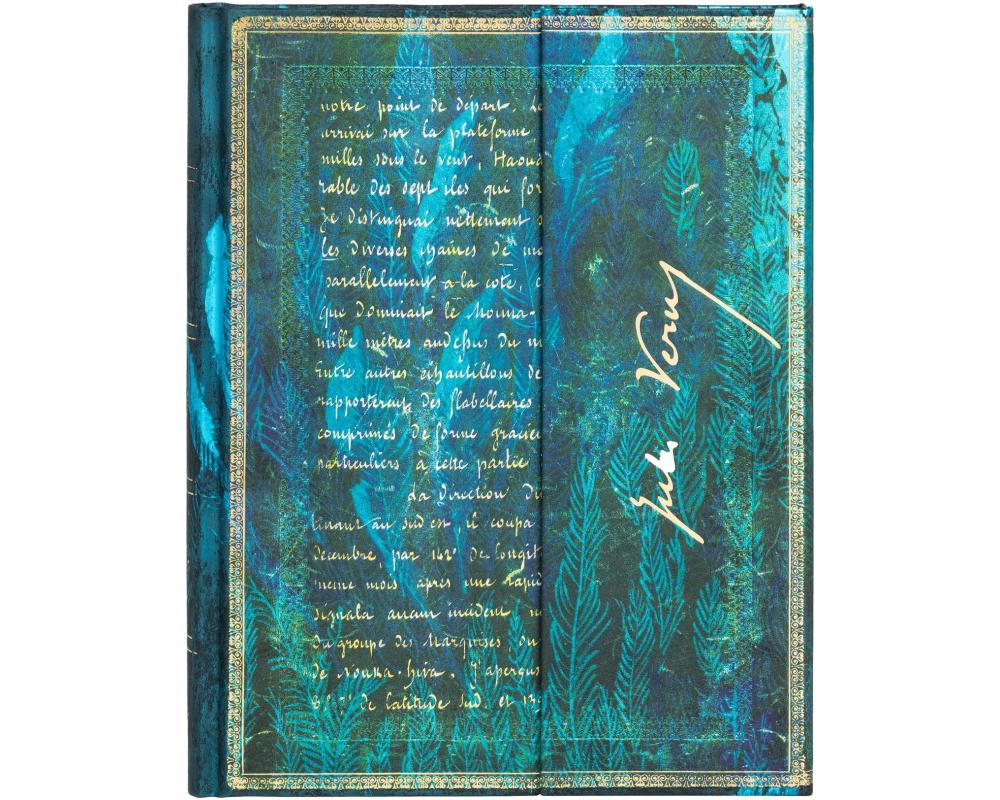 notre point de départ. Le
arrivai sur la plateforme
milles sous le vent, Haoua
rable des sept iles qui for
Je distinguai nettement s
les diverses chaines de mo
parallelement a la cote, e
que dominait le Mouna-
mille mètres audessus du n
Entre autres échantillons de
rapporterent des flabellaires
comprimés de forme gracieu
particuliers à cette partie
La direction du
tinant au sud est, il coupa
decembre, par 142° de longit
meme mois après une rapid
signala aucun incident, n
du groupe des Marquises, ou
de Nouka-hiva. J'aperçus
de latitude sud. et 139
Jules Verne